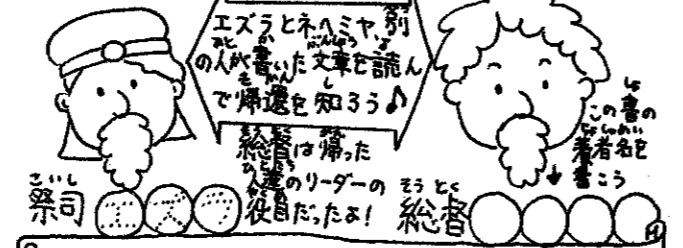 エズラとネヘミヤ、別
の人が書いた文章を読ん
で帰還を知ろう♪
総督は帰った
達のリーダーの
役目だったよ!
この書の
著者名を
↓書こう
祭司 エズラ
そうとく
総督